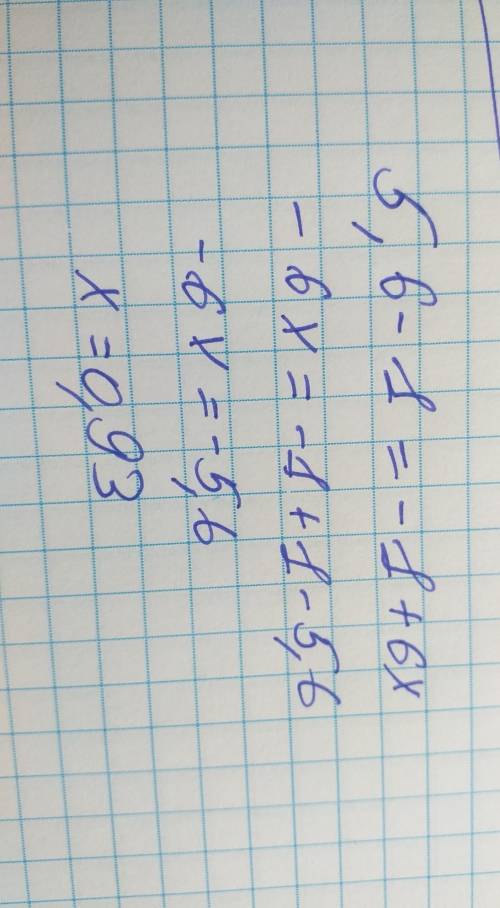 5,6-1=-1+6x
-6x=-1+1-5,6
-6x=-5,6
x=0,93